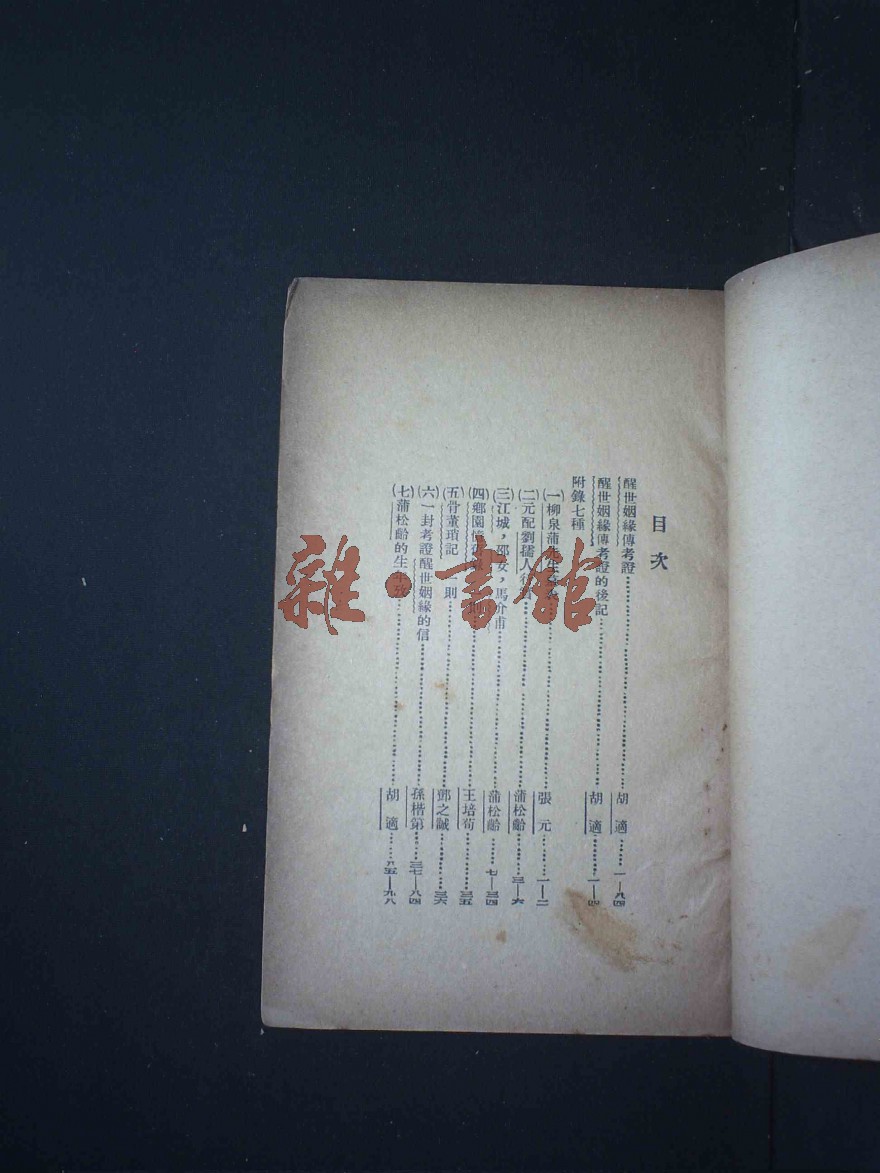 目次
醒世姻緣傳考證……胡適……一—八四
醒世姻緣傳考證的後記……胡適……一—四
附錄七種
(一)柳泉蒲先生墓表……張元……一—二
(二)元配劉孺人行……蒲松齡……三—六
(三)江城，邵女，馬介甫……蒲松齡……七—三四
(四)鄉園憶舊……王培荀……三五
(五)骨董瑣記一則……鄧之誠……三六
(六)一封考證醒世姻緣的信……孫楷第……三七—八四
(七)蒲松齡的生年考……胡適……八五—九八
雜·書館